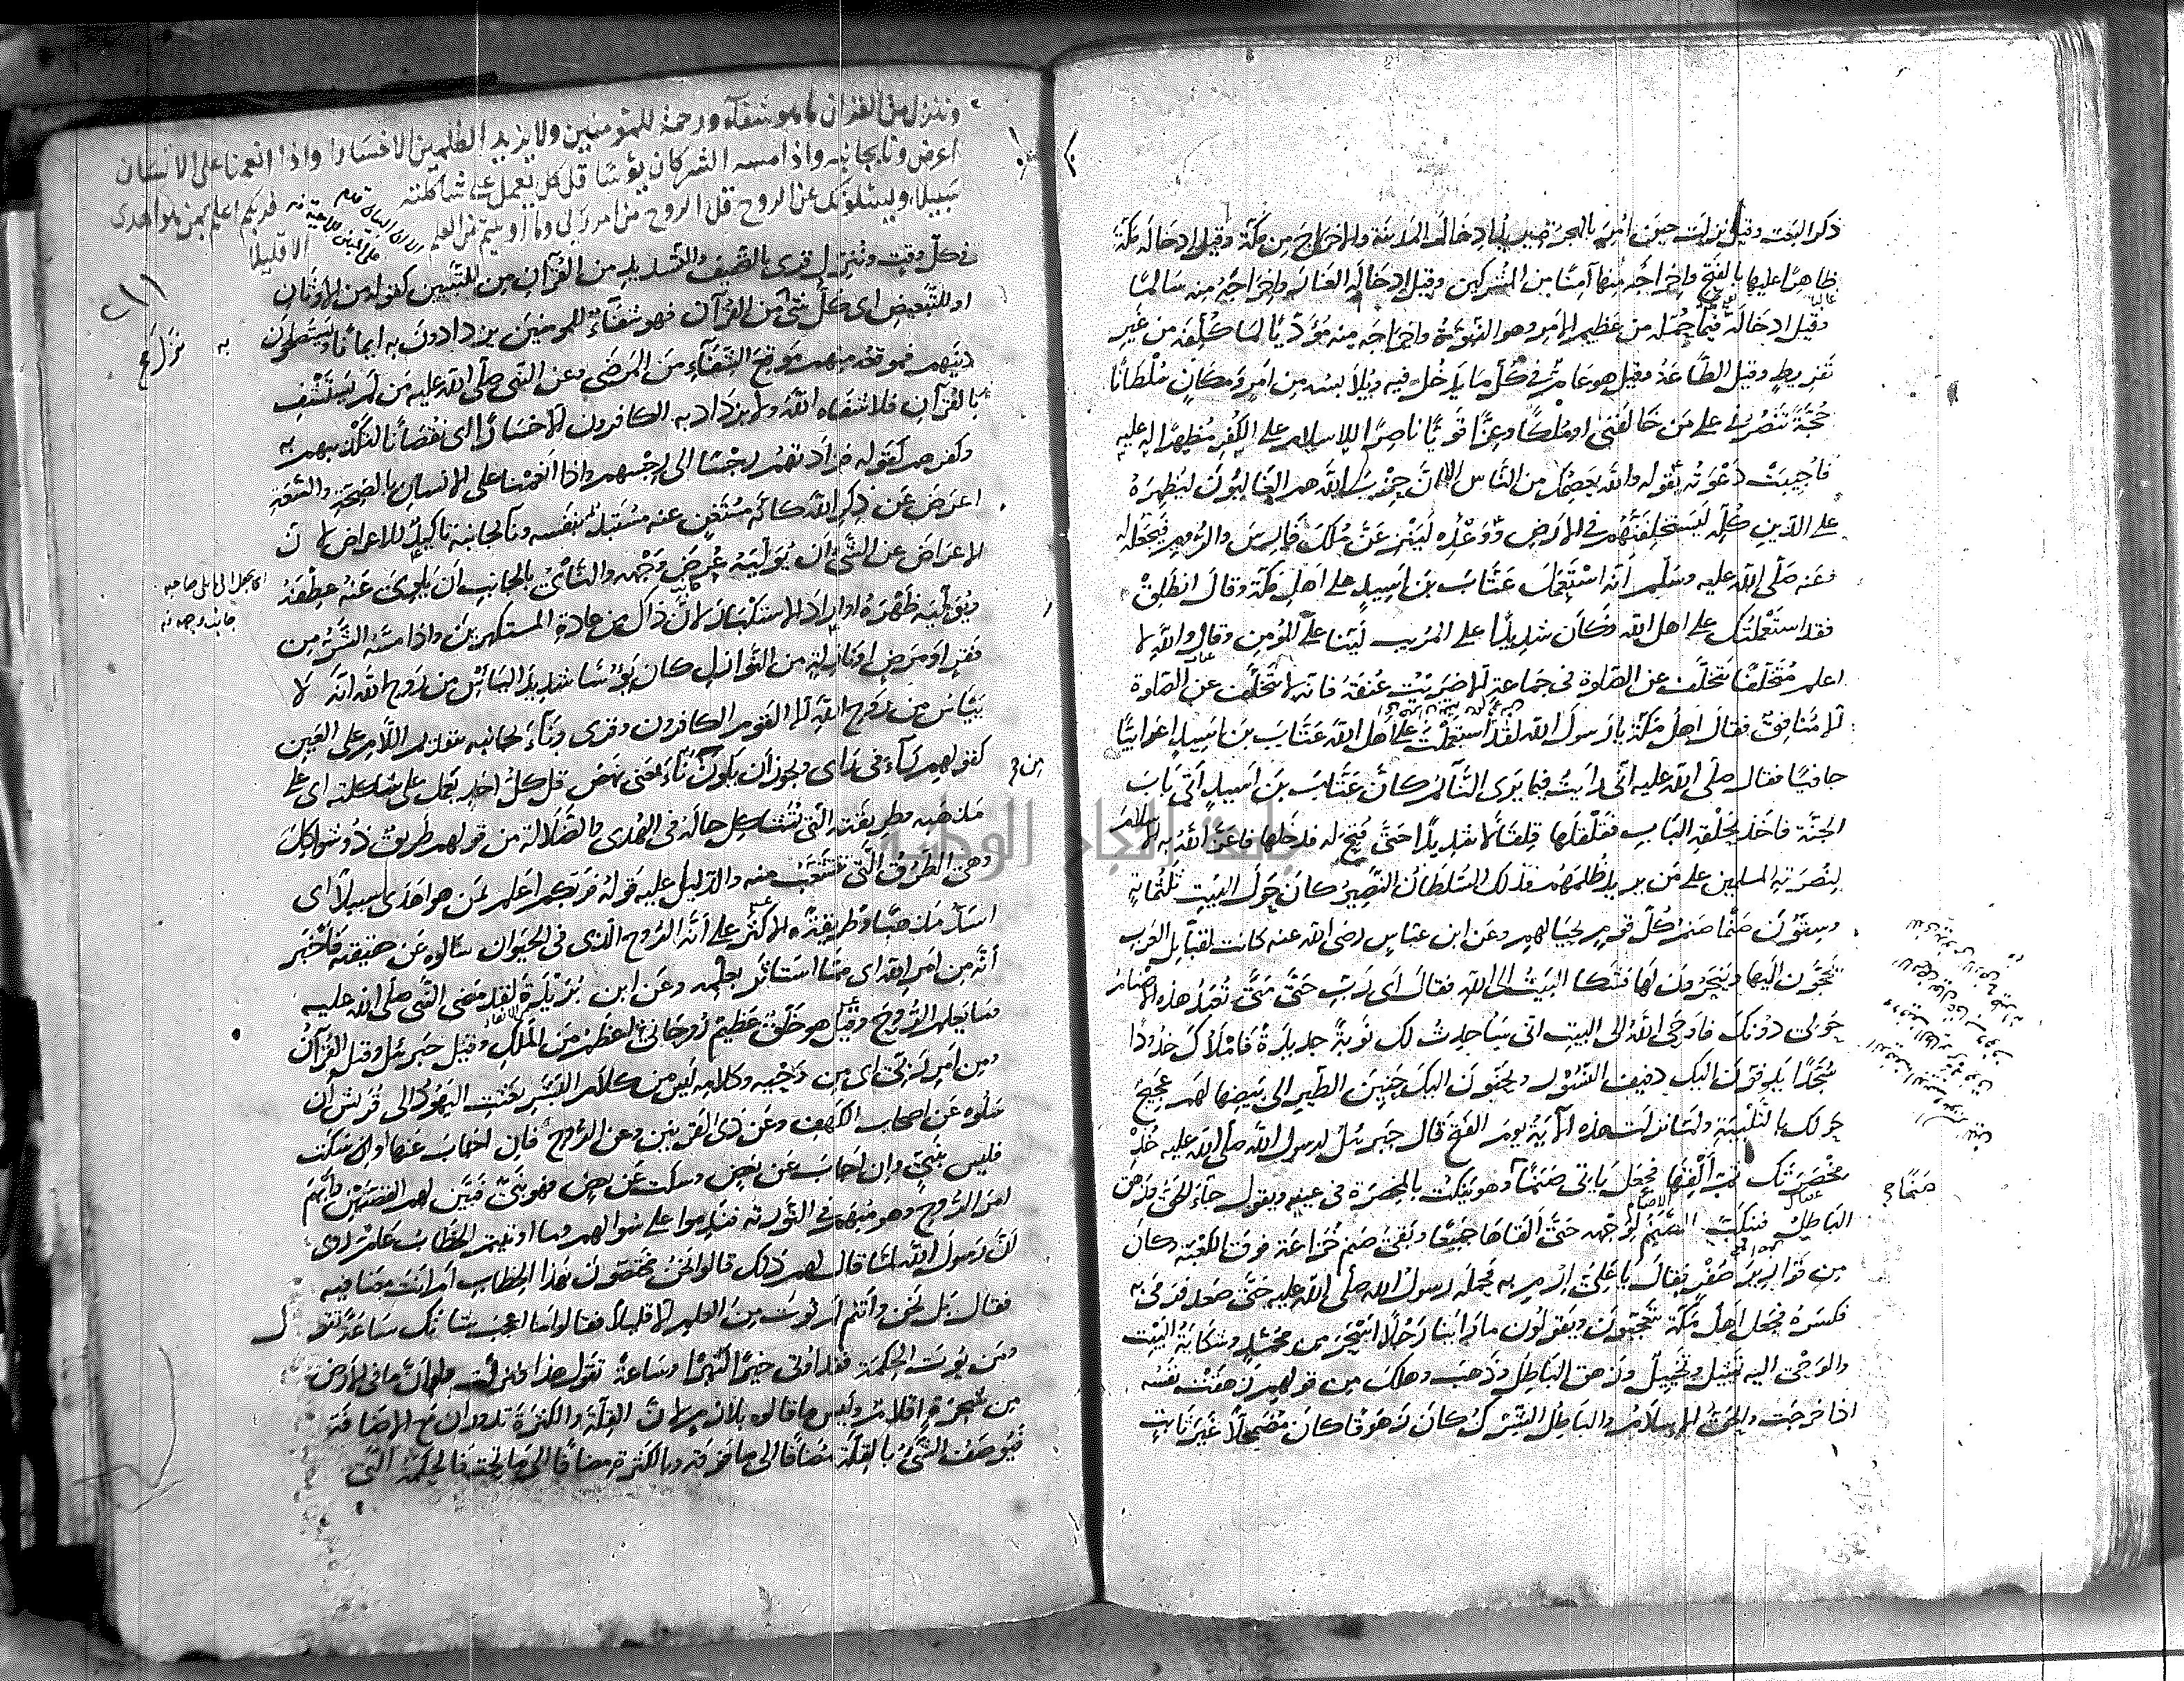 ذكر البعث وقيل نزلت حين امر بالهجرة يريد ادخال المدينة والاخراج من مكة وقيل ادخاله مكة
ظاهرا عليها بالفتح واخراجه منها آمنا من المشركين وقيل ادخاله الغار واخراجه منه سالما
وقيل ادخاله فيما حمله من عظيم الامر وهو النبوة واخراجه منه مؤديا لما كلفه من غير
تفريط وقيل الطاعة وقيل هو عام في كل ما يدخل فيه ويلابسه من امر ومكان سلطانا
حجة تنصرني على من خالفني او ملكا وعزا قويا ناصرا للاسلام على الكفر مظهرا له عليه
فاجيبت دعوته بقوله والله يعصمك من الناس الا ان حزب الله هم الغالبون ليظهره
على الدين كله ليستخلفنهم في الارض ووعده لينزعن ملك فارس والروم فيجعله له
وعنه صلى الله عليه وسلم انه استعمل عتاب بن اسيد على اهل مكة وقال انطلق
فقد استعملتك على اهل الله وكان شديدا على المريب لينا على المؤمن وقال والله لا
اعلم متخلفا يتخلف عن الصلوة في جماعة الا ضربت عنقه فانه لا يتخلف عن الصلوة
الا منافق فقال اهل مكة يا رسول الله لقد استعملت على اهل الله عتاب بن اسيد اعرابيا
جافيا فقال صلى الله عليه اني رايت فيما يرى النائم كان عتاب بن اسيد اتى باب
الجنة فاخذ بحلقة الباب فقلقلها قلقالا شديدا حتى فتح له فدخلها فاعز الله به الاسلام
لنصرته المسلمين على من يريد ظلمهم فذلك السلطان النصير كان حول البيت ثلثمائة
وستون صنما صنم كل قوم بحيالهم وعن ابن عباس رضي الله عنه كانت لقبائل العرب
يحجون اليها وينحرون لها فشكا البيت الى الله فقال اي رب حتى متى تعبد هذه الاصنام
حولي دونك فاوحى الله الى البيت اني ساحدث لك نوبة جديدة فاملأك خدودا
سجدا يدفون اليك دفيف النسور ويحنون اليك حنين الطير الى بيضها لهم عجيج
حولك بالتلبية ولما نزلت هذه الآية يوم الفتح قال جبرئل لرسول الله صلى الله عليه خذ
مخصرتك ثم القها فجعل ياتي صنما صنما وهو ينكت بالمخصرة في عينه ويقول جاء الحق وزهق
الباطل فينكب الصنم لوجهه حتى القاها جميعا وبقي صنم خزاعة فوق الكعبة وكان
من قوارير صفر فقال يا علي ارم به فحمله رسول الله صلى الله عليه حتى صعد فرمى به
فكسره فجعل اهل مكة يتعجبون ويقولون ما راينا رجلا اسحر من محمد وشكاية البيت
والوحي اليه تمثيل وتخييل وزهق الباطل وذهب وهلك من قولهم زهقت نفسه
اذا خرجت والحق الاسلام والباطل الشرك كان زهوقا كان مضمحلا غير ثابت
صنما
وننزل من القران ما هو شفاء ورحمة للمؤمنين ولا يزيد الظلمين الا خسارا واذا انعمنا على الانسان
اعرض ونا بجانبه واذا مسه الشر كان يؤسا قل كل يعمل على شاكلته فربكم اعلم بمن هو اهدى
سبيلا ويسئلونك عن الروح قل الروح من امر ربي وما اوتيتم من العلم الا قليلا
في كل وقت وننزل قرى بالتخفيف والتشديد من القرآن من للتبيين كقوله من الاوثان
او للتبعيض اي كل شئ من القرآن فهو شفاء للمؤمنين يزدادون به ايمانا ويستصلحون
دينهم فموقعه منهم موقع الشفاء من المرضى وعن النبي صلى الله عليه من لم يستشف
بالقرآن فلا شفاه الله ولا يزداد به الكافرون الا خسارا اي نقصانا لتكذيبهم به
وكفرهم كقوله فزادتهم رجسا الى رجسهم واذا انعمنا على الانسان بالصحة والسعة
اعرض عن ذكر الله كانه مستغن عنه مستبد بنفسه ونآ بجانبه تاكيد للاعراض لان
الاعراض عن الشئ ان يوليه عرض وجهه والنأي بالجانب ان يلوي عنه عطفه
ويوليه ظهره او اراد الاستكبار لان ذاك من عادة المستكبرين واذا مسه الشر من
فقر او مرض او نازلة من النوازل كان يؤسا شديد الياس من روح الله انه لا
ييأس من روح الله الا القوم الكافرون وقرى وناء بجانبه بتقديم اللام على العين
كقولهم راء في راى ويجوز ان يكون ناء بمعنى نهض قل كل احد يعمل على شاكلته اي على
مذهبه وطريقته التي تشاكل حاله في الهدى والضلالة من قولهم طريق ذو شواكل
وهي الطرق التي تتشعب منه والدليل عليه قوله فربكم اعلم بمن هو اهدى سبيلا اي
اسد مذهبا وطريقة الاكثر على ان الروح الذي في الحيوان سالوه عن حقيقته فاخبر
انه من امر الله اي مما استاثر بعلمه وعن ابن بريدة لقد مضى النبي صلى الله عليه
وما يعلم الروح وقيل هو خلق عظيم روحاني اعظم من الملك وقيل جبرئل وقيل القرآن
ومن امر ربي اي من وحيه وكلامه ليس من كلام البشر بعثت اليهود الى قريش ان
سلوه عن اصحاب الكهف وعن ذي القرنين وعن الروح فان اجاب عنها او سكت
فليس بنبي وان اجاب عن بعض وسكت عن بعض فهو نبي فبين لهم القصتين وابهم
امر الروح وهو مبهم في التورية فندموا على سؤالهم وما اوتيتم الخطاب عام روي
ان رسول الله لما قال لهم ذلك قالوا نحن مختصون بهذا الخطاب ام انت معنا فيه
فقال بل نحن وانتم لم نؤت من العلم الا قليلا فقالوا ما اعجب شانك ساعة تقول
ومن يؤت الحكمة فقد اوتي خيرا كثيرا وساعة تقول هذا فنزلت ولو ان ما في الارض
من شجرة اقلام وليس ما قالوه بلازم لان القلة والكثرة تدوران مع الاضافة
فيوصف الشئ بالقلة مضافا الى ما فوقه وبالكثرة مضافا الى ما تحته فالحكمة التي